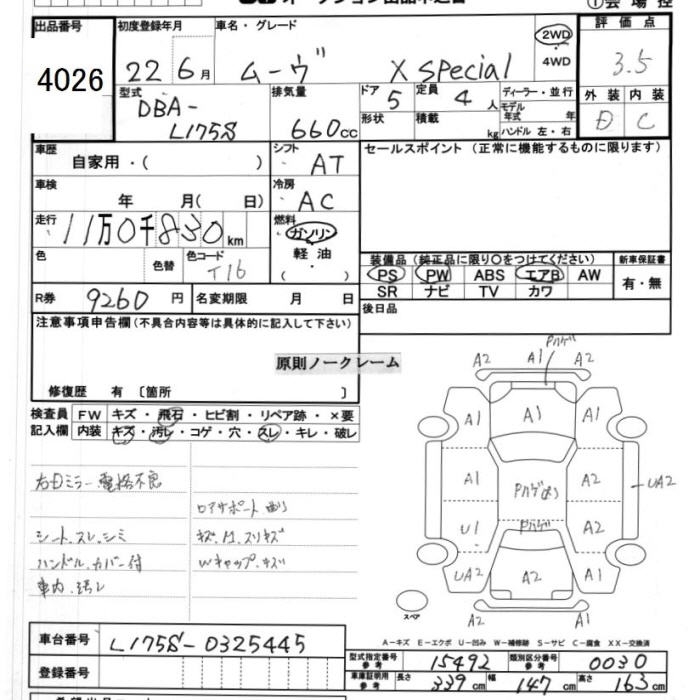 出品番号 初度登録年月 車名・グレード 評価点
4026 22年 6月 ムーヴ X SPecial 2WD 3.5
4WD
型式 排気量 ドア 定員 ディーラー・並行 外装 内装
DBA- 5 4人 モデル年式 年 D C
L175S 660cc 形状 積載 kg ハンドル 左・右
車歴 シフト セールスポイント (正常に機能するものに限ります)
自家用・( ) AT
車検 冷房
年 月( 日) AC
走行 燃料
11万0千830km ガソリン
色 色替 色コード 軽油 装備品 (純正品に限り○をつけてください) 新車保証書
T16 ・( ) PS PW ABS エアB AW 有・無
R券 9260円 名変期限 月 日 SR ナビ TV カワ
注意事項申告欄 (不具合内容等は具体的に記入して下さい) 後日品
原則ノークレーム
修復歴 有 〔箇所 〕
検査員 FW キズ・飛石・ヒビ割・リペア跡・×要
記入欄 内装 キズ・汚レ・コゲ・穴・スレ・キレ・破レ
右Dミラー電格不良
シート、スレ、シミ
ハンドル、カバー付
車内、汚レ
ロアサポート
Wキャップ、キズ
A2 A1 A2
A1 A1 A1
A1 A2 UA2
U1 A2
UA2 A2 A1
A2 A1 A2
スペア
A-キズ E-エクボ U-凹み W-補修跡 S-サビ C-腐食 XX-交換済
車台番号 L175S-0325445
登録番号
型式指定番号 参考 15492 類別区分番号 参考 0030
車庫証明用 参考 長さ 339cm 幅 147cm 高さ 163cm